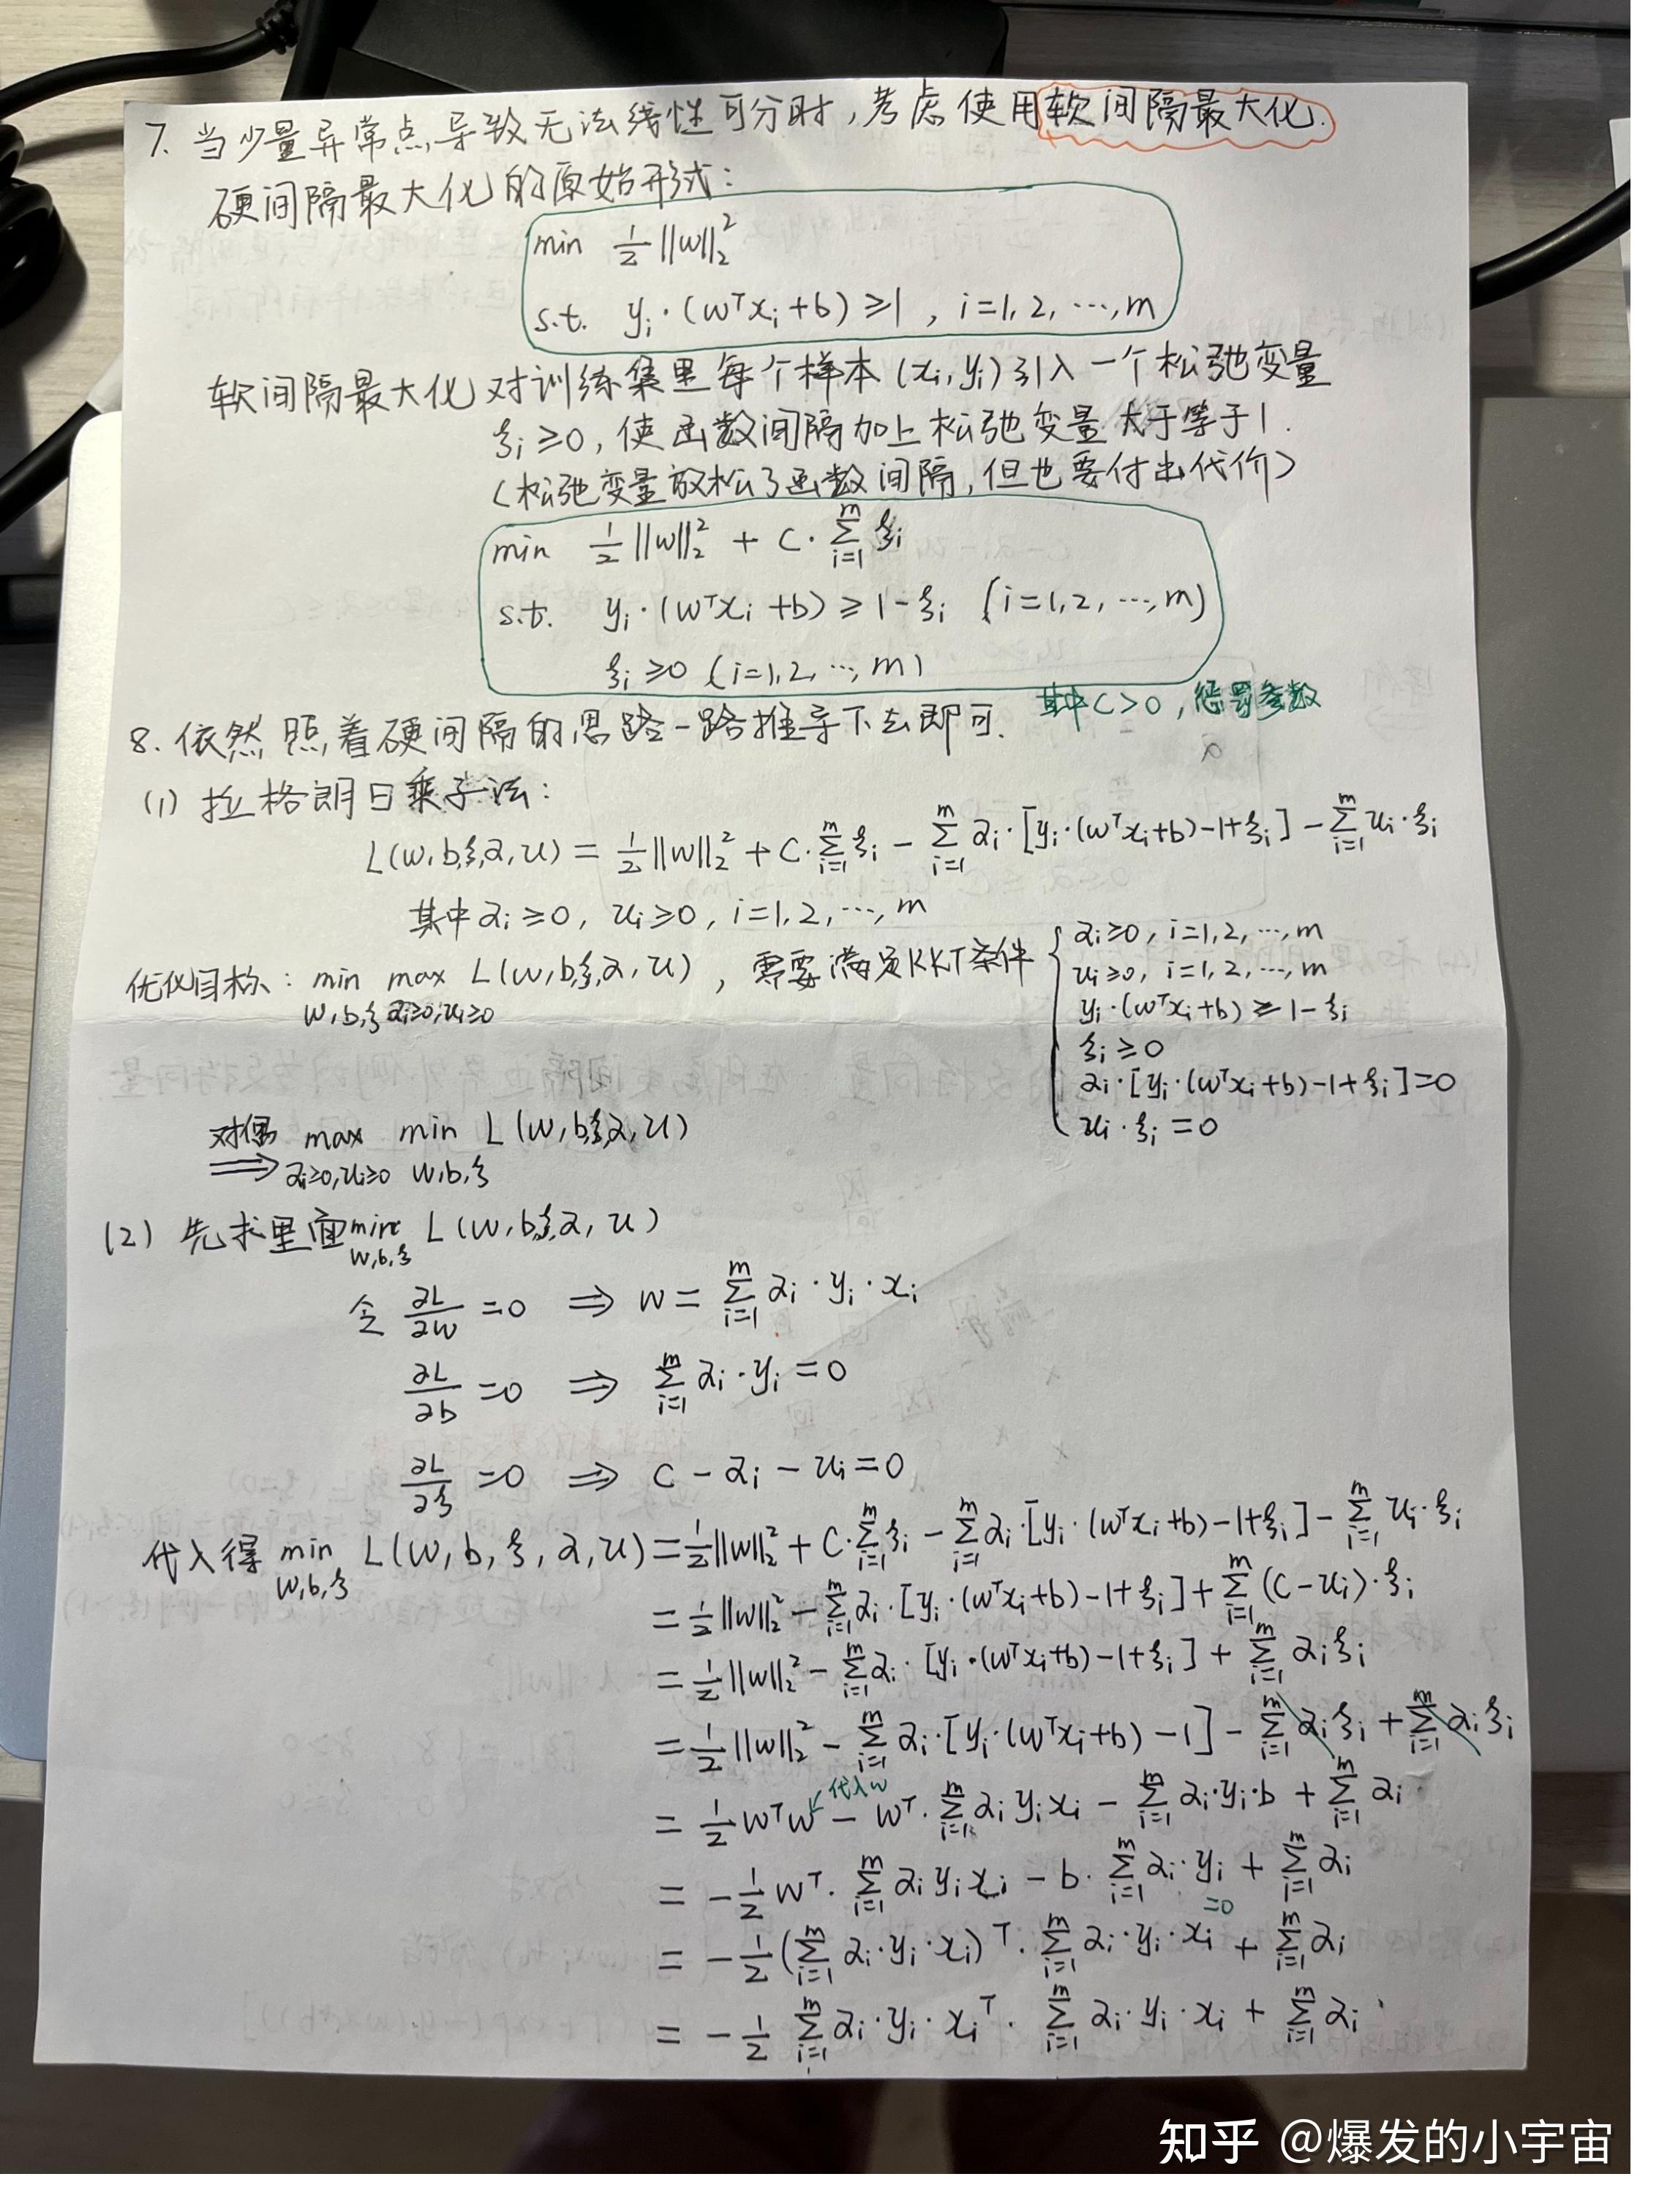 7. 当少量异常点,导致无法线性可分时,考虑使用软间隔最大化.
硬间隔最大化的原始形式:
min ½||w||₂²
s.t. yᵢ·(wᵀxᵢ+b)≥1 , i=1,2,…,m
软间隔最大化对训练集里每个样本(xᵢ,yᵢ)引入一个松弛变量
ξᵢ≥0,使函数间隔加上松弛变量大于等于1.
(松弛变量放松了函数间隔,但也要付出代价)
min ½||w||₂² + C·∑ᵢ₌₁ᵐ ξᵢ
s.t. yᵢ·(wᵀxᵢ+b)≥1-ξᵢ (i=1,2,…,m)
ξᵢ≥0 (i=1,2,…,m)
其中C>0,惩罚参数
8. 依然照着硬间隔的思路一路推导下去即可.
(1) 拉格朗日乘子法:
L(w,b,ξ,α,u) = ½||w||₂² + C·∑ᵢ₌₁ᵐ ξᵢ - ∑ᵢ₌₁ᵐ αᵢ·[yᵢ·(wᵀxᵢ+b)-1+ξᵢ] - ∑ᵢ₌₁ᵐ uᵢ·ξᵢ
其中αᵢ≥0, uᵢ≥0, i=1,2,…,m
优化目标: min_{w,b,ξ} max_{αᵢ≥0,uᵢ≥0} L(w,b,ξ,α,u) , 需要满足KKT条件
{ αᵢ≥0, i=1,2,…,m
uᵢ≥0, i=1,2,…,m
yᵢ·(wᵀxᵢ+b)≥1-ξᵢ
ξᵢ≥0
αᵢ·[yᵢ·(wᵀxᵢ+b)-1+ξᵢ]=0
uᵢ·ξᵢ=0
对偶⟹ max_{αᵢ≥0,uᵢ≥0} min_{w,b,ξ} L(w,b,ξ,α,u)
(2) 先求里面min_{w,b,ξ} L(w,b,ξ,α,u)
令 ∂L/∂w =0 ⟹ w = ∑ᵢ₌₁ᵐ αᵢ·yᵢ·xᵢ
∂L/∂b =0 ⟹ ∑ᵢ₌₁ᵐ αᵢ·yᵢ=0
∂L/∂ξ =0 ⟹ C-αᵢ-uᵢ=0
代入得 min_{w,b,ξ} L(w,b,ξ,α,u) = ½||w||₂² + C·∑ᵢ₌₁ᵐ ξᵢ - ∑ᵢ₌₁ᵐ αᵢ·[yᵢ·(wᵀxᵢ+b)-1+ξᵢ] - ∑ᵢ₌₁ᵐ uᵢ·ξᵢ
= ½||w||₂² - ∑ᵢ₌₁ᵐ αᵢ·[yᵢ·(wᵀxᵢ+b)-1+ξᵢ] + ∑ᵢ₌₁ᵐ (C-uᵢ)·ξᵢ
= ½||w||₂² - ∑ᵢ₌₁ᵐ αᵢ·[yᵢ·(wᵀxᵢ+b)-1+ξᵢ] + ∑ᵢ₌₁ᵐ αᵢξᵢ
= ½||w||₂² - ∑ᵢ₌₁ᵐ αᵢ·[yᵢ·(wᵀxᵢ+b)-1] - ∑ᵢ₌₁ᵐ αᵢξᵢ + ∑ᵢ₌₁ᵐ αᵢξᵢ
代入w
= ½wᵀw - wᵀ·∑ᵢ₌₁ᵐ αᵢyᵢxᵢ - ∑ᵢ₌₁ᵐ αᵢ·yᵢ·b + ∑ᵢ₌₁ᵐ αᵢ
= -½wᵀ·∑ᵢ₌₁ᵐ αᵢyᵢxᵢ - b·∑ᵢ₌₁ᵐ αᵢ·yᵢ + ∑ᵢ₌₁ᵐ αᵢ
=0
= -½(∑ᵢ₌₁ᵐ αᵢ·yᵢ·xᵢ)ᵀ·∑ᵢ₌₁ᵐ αᵢ·yᵢ·xᵢ + ∑ᵢ₌₁ᵐ αᵢ
= -½ ∑ᵢ₌₁ᵐ αᵢ·yᵢ·xᵢᵀ·∑ᵢ₌₁ᵐ αᵢ·yᵢ·xᵢ + ∑ᵢ₌₁ᵐ αᵢ
知乎 @爆发的小宇宙